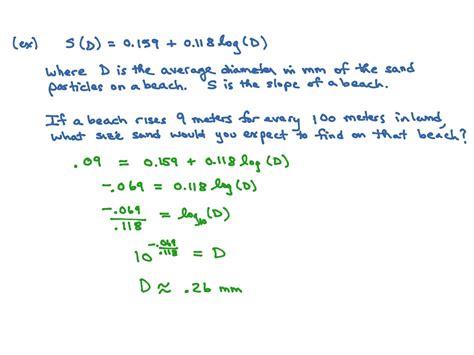 (ex) S(D) = 0.159 + 0.118 log(D)
where D is the average diameter in mm of the sand
particles on a beach. S is the slope of a beach.
If a beach rises 9 meters for every 100 meters inland,
what size sand would you expect to find on that beach?
.09 = 0.159 + 0.118 log(D)
-.069 = 0.118 log(D)
-.069/.118 = log₁₀(D)
10^(-.069/.118) = D
D ≈ .26 mm